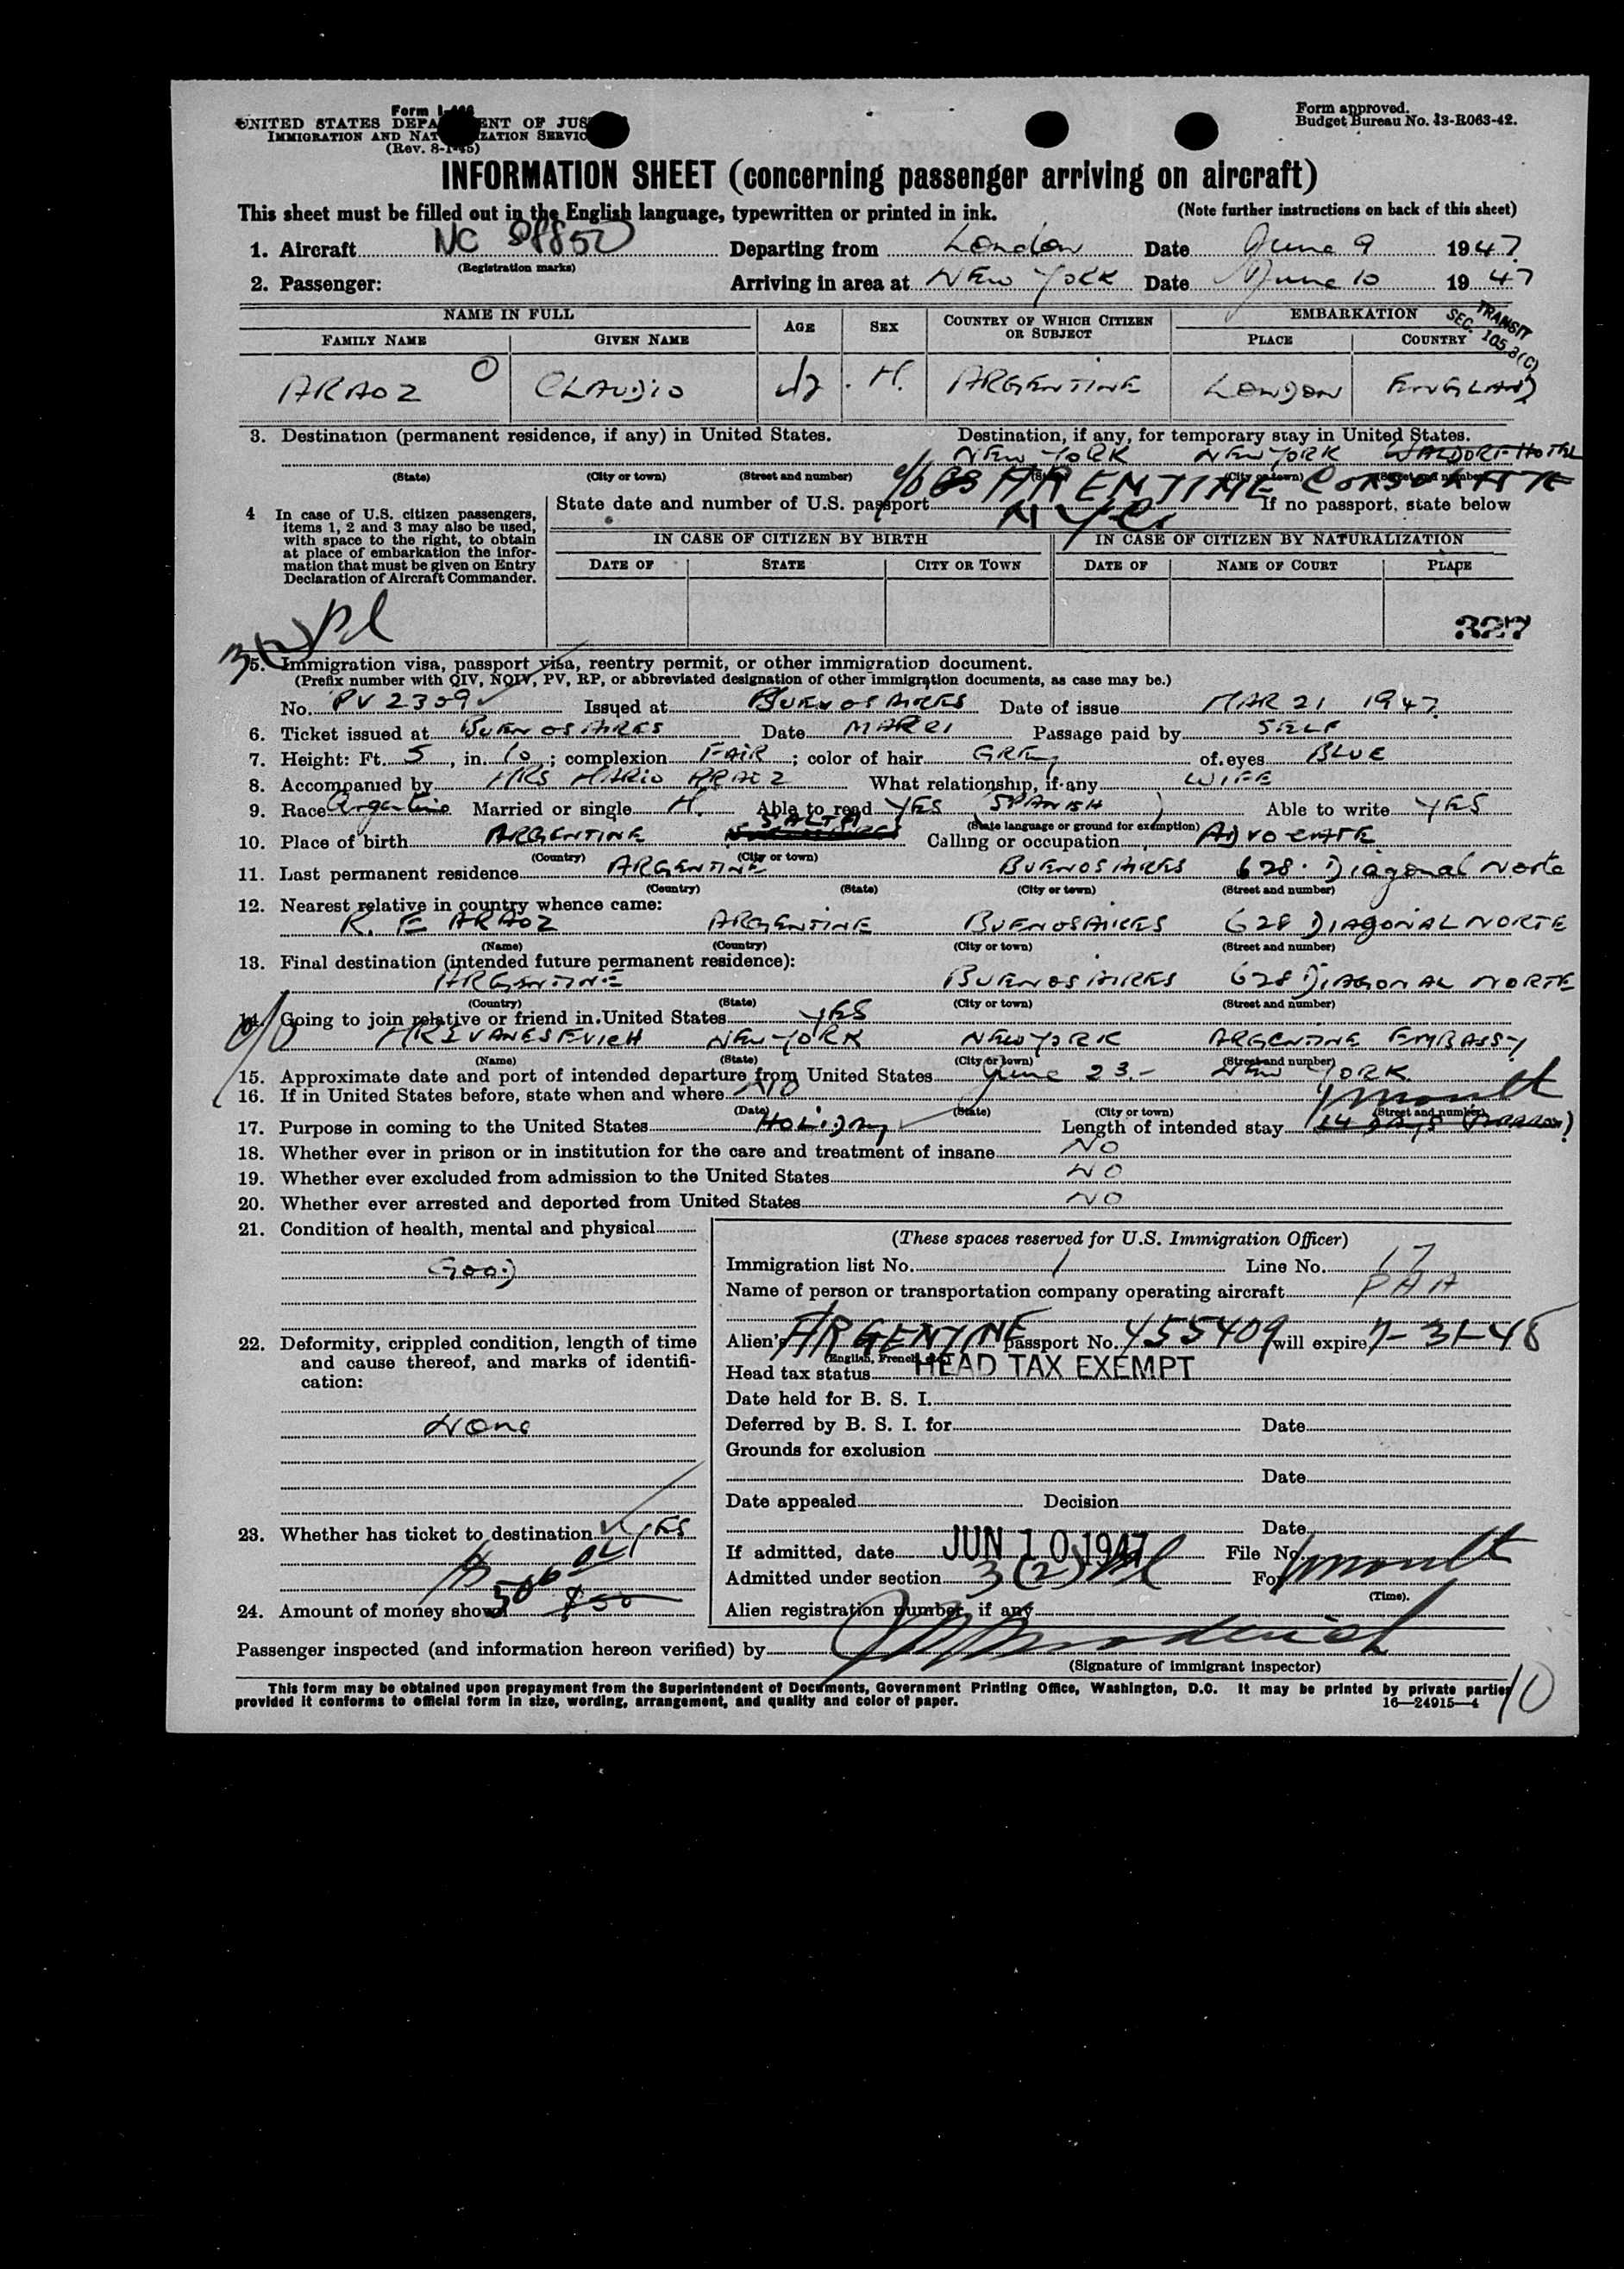 Form I-466
UNITED STATES DEPARTMENT OF JUSTICE
IMMIGRATION AND NATURALIZATION SERVICE
(Rev. 8-1-45)
Form approved.
Budget Bureau No. 43-R063-42.
INFORMATION SHEET (concerning passenger arriving on aircraft)
This sheet must be filled out in the English language, typewritten or printed in ink. (Note further instructions on back of this sheet)
1. Aircraft NC 88850 Departing from London Date June 9 1947
(Registration marks)
2. Passenger: Arriving in area at NEW YORK Date June 10 1947
TRANSIT
SEC. 105.3(C)
NAME IN FULL AGE SEX COUNTRY OF WHICH CITIZEN OR SUBJECT EMBARKATION
FAMILY NAME GIVEN NAME PLACE COUNTRY
ARAOZ CLAUDIO M. ARGENTINE LONDON ENGLAND
3. Destination (permanent residence, if any) in United States. Destination, if any, for temporary stay in United States.
NEW YORK NEW YORK WALDORF HOTEL
(State) (City or town) (Street and number) (State) (City or town) (Street and number)
c/o ARENTINE CONSULATE
N.Y.C.
4 In case of U.S. citizen passengers, items 1, 2 and 3 may also be used, with space to the right, to obtain at place of embarkation the information that must be given on Entry Declaration of Aircraft Commander.
State date and number of U.S. passport If no passport, state below
IN CASE OF CITIZEN BY BIRTH IN CASE OF CITIZEN BY NATURALIZATION
DATE OF STATE CITY OR TOWN DATE OF NAME OF COURT PLACE
327
3(2) Pl
5. Immigration visa, passport visa, reentry permit, or other immigration document.
(Prefix number with QIV, NQIV, PV, RP, or abbreviated designation of other immigration documents, as case may be.)
No. PV 2309 Issued at BUENOS AIRES Date of issue MAR 21 1947
6. Ticket issued at BUENOS AIRES Date MAR 21 Passage paid by SELF
7. Height: Ft. 5, in. 10; complexion FAIR; color of hair GREY of eyes BLUE
8. Accompanied by MRS MARIO ARAOZ What relationship, if any WIFE
9. Race Argentine Married or single M. Able to read YES SPANISH Able to write YES
(State language or ground for exemption)
10. Place of birth ARGENTINE SALTA Calling or occupation ADVOCATE
(Country) (City or town)
11. Last permanent residence ARGENTINE BUENOS AIRES 628 Diagonal Norte
(Country) (State) (City or town) (Street and number)
12. Nearest relative in country whence came:
R. E ARAOZ ARGENTINE BUENOS AIRES 628 DIAGONAL NORTE
(Name) (Country) (City or town) (Street and number)
13. Final destination (intended future permanent residence):
ARGENTINE BUENOS AIRES 628 DIAGONAL NORTE
(Country) (State) (City or town) (Street and number)
14. Going to join relative or friend in United States YES
c/o MR IVANESEVICH NEW YORK NEW YORK ARGENTINE EMBASSY
(Name) (State) (City or town) (Street and number)
15. Approximate date and port of intended departure from United States June 23.- NEW YORK
16. If in United States before, state when and where NO
(Date) (State) (City or town) (Street and number)
1 month
17. Purpose in coming to the United States HOLIDAY Length of intended stay 14 DAYS
18. Whether ever in prison or in institution for the care and treatment of insane NO
19. Whether ever excluded from admission to the United States NO
20. Whether ever arrested and deported from United States NO
21. Condition of health, mental and physical
GOOD
22. Deformity, crippled condition, length of time and cause thereof, and marks of identification:
None
23. Whether has ticket to destination YES
24. Amount of money shown $50
(These spaces reserved for U.S. Immigration Officer)
Immigration list No. 1 Line No. 17
Name of person or transportation company operating aircraft PAA
Alien's ARGENTINE passport No. 455409 will expire 7-31-48
(English, French, etc.)
Head tax status HEAD TAX EXEMPT
Date held for B. S. I.
Deferred by B. S. I. for Date
Grounds for exclusion
Date
Date appealed Decision
Date
If admitted, date JUN 10 1947 File No.
Admitted under section 3(2) Pl For 1 month
(Time).
Alien registration number, if any
Passenger inspected (and information hereon verified) by
(Signature of immigrant inspector)
This form may be obtained upon prepayment from the Superintendent of Documents, Government Printing Office, Washington, D.C. It may be printed by private parties
provided it conforms to official form in size, wording, arrangement, and quality and color of paper. 16—24915-4
10